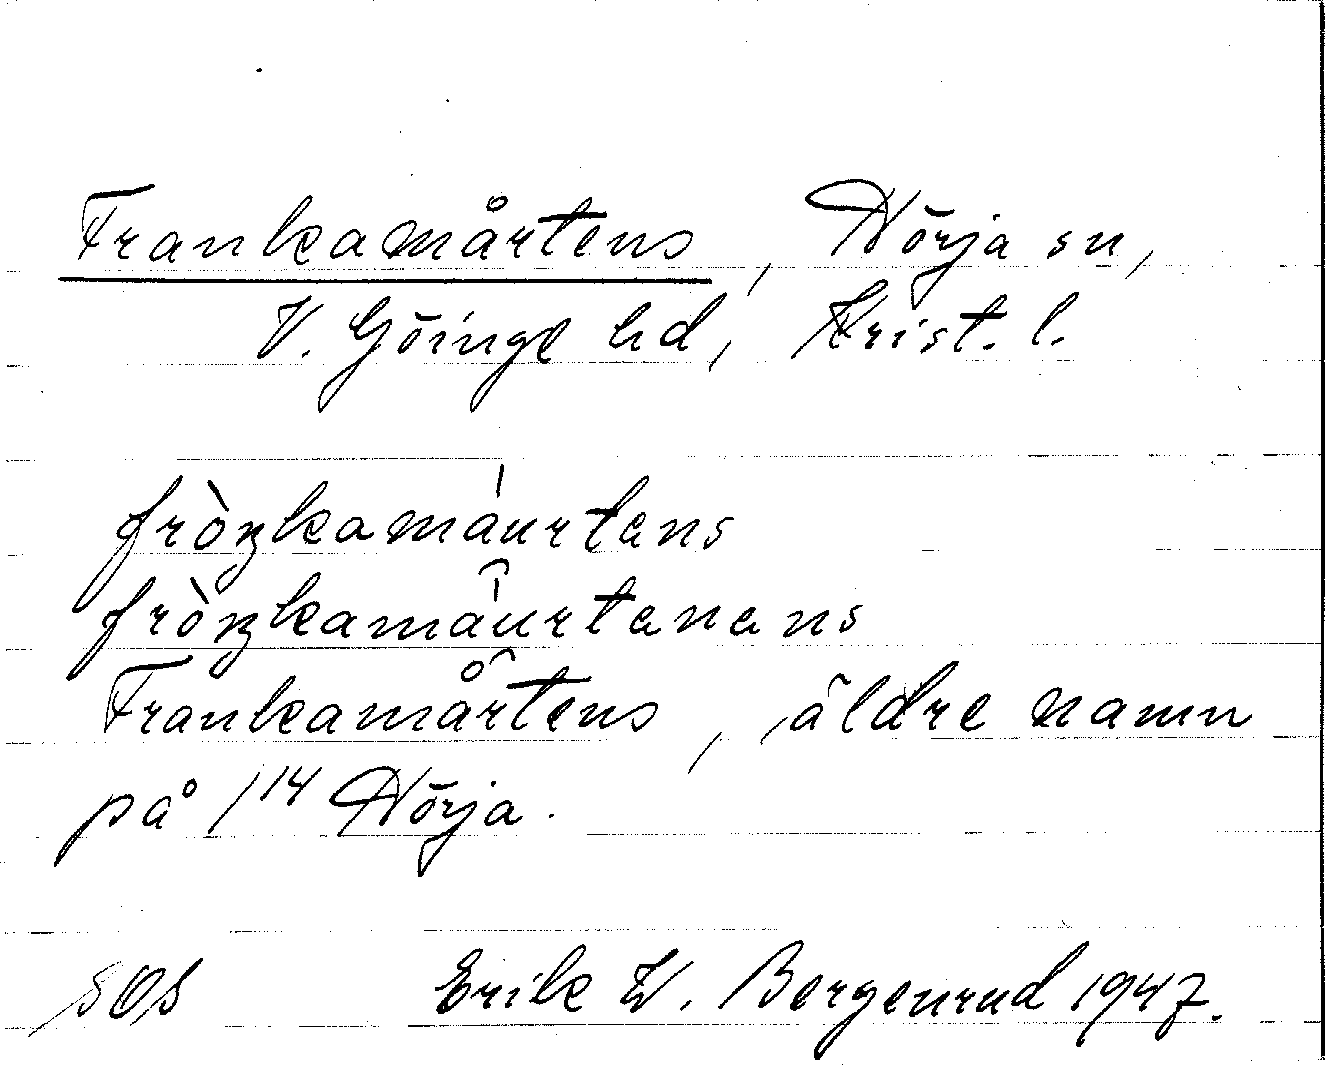 Frankamårtens, Nörja sn,
V. Göinge hd, Krist. l.
fròŋkamáurtans
fròŋkamâurtanans
Frankamårtens, äldre namn
på 1¹⁴ Nörja.
SOS Erik W. Bergenrud 1947.